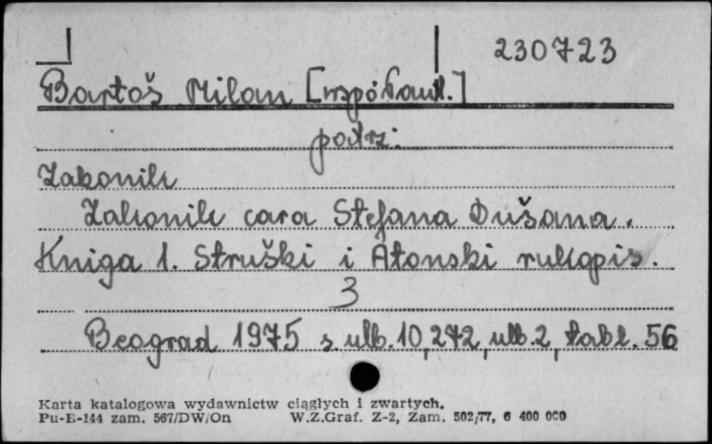 230723
Bartoš Milan [współaut.]
patrz:
Zakonik
Zakonik cara Stefana Dušana.
Kniga 1. Struški i Atonski rukopis.
3
Beograd 1975 s ulb. 10, 272, ulb. 2, tabl. 56
Karta katalogowa wydawnictw ciągłych i zwartych.
Pu-E-144 zam. 567/DW/On W.Z.Graf. Z-2, Zam. 502/77, 6 400 000